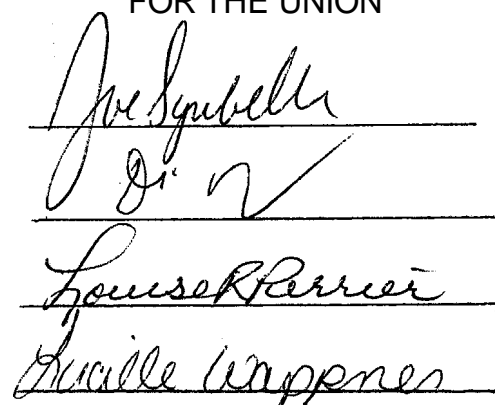 FOR THE UNION
Joe
Louise R Perrier
Lucille Wappner